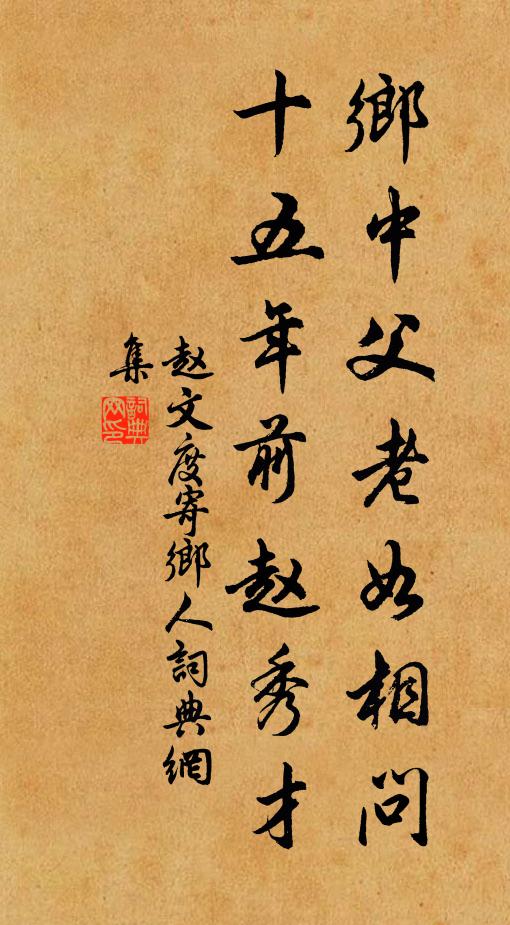 鄉中父老如相問
十五年前趙秀才
趙文度寄鄉人詞典網
集
詞典網印